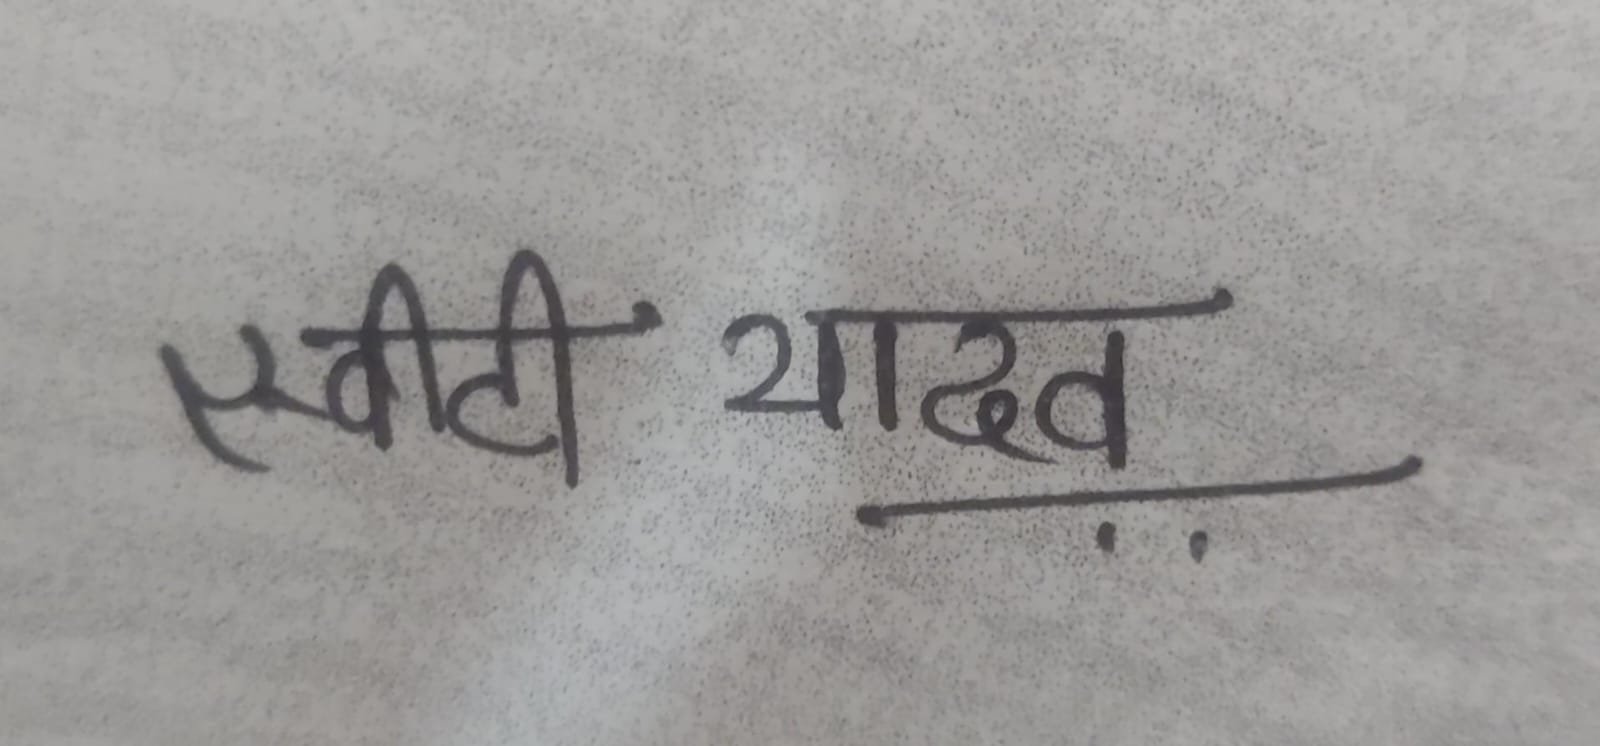 स्वीटी यादव